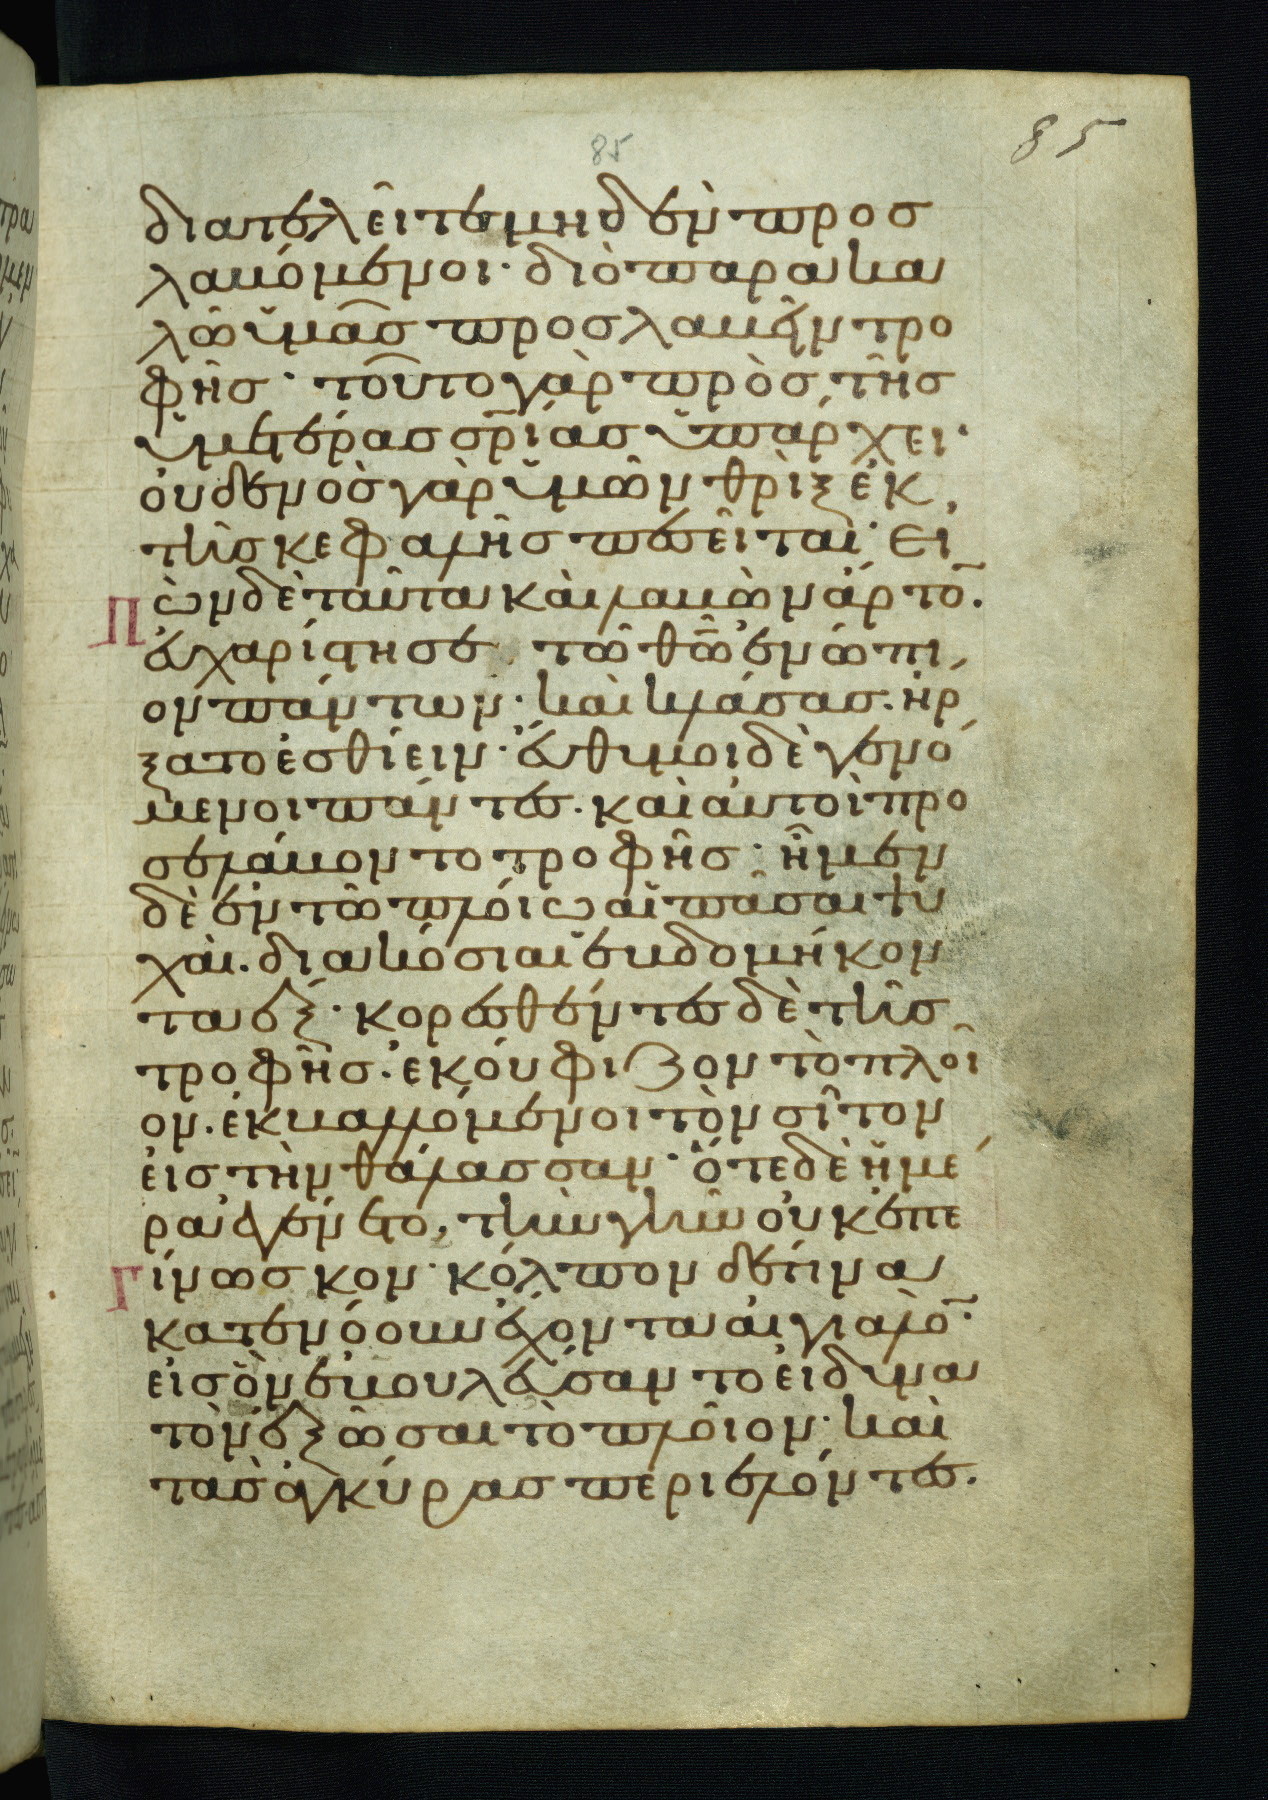 85
85
διατελεῖτε μηδὲν προσ
λαβόμενοι· διὸ παρακα
λῶ ὑμᾶς προσλαβεῖν τρο
φῆς· τοῦτο γὰρ πρὸς τῆς
ὑμετέρας σρίας ὑπάρχει·
οὐδενὸς γὰρ ὑμῶν θρὶξ ἐκ
τῆς κεφαλῆς πεσεῖται· Εἰ
πὼν δὲ ταῦτα καὶ λαβὼν ἄρτο̄.
εὐχαρίστησε τῶ θῶ ἐνώπι
ον πάντων· καὶ κλάσας. ἤρ
ξατο ἐσθίειν· εὔθυμοι δὲ γενό
μενοι πάντες. καὶ αὐτοὶ προ
σελάβοντο τροφῆς· ἦμεν
δὲ ἐν τῶ πλοίω αἱ πᾶσαι ψυ
χαὶ. διακόσιαι ἑβδομήκον
τα ἕξ· κορεσθέντες δὲ τῆς
τροφῆς. ἐκούφιζον τὸ πλοῖ
ον. ἐκβαλλόμενοι τὸν σῖτον
εἰς τὴν θάλασσαν· ὅτε δὲ ἡμέ
ρα ἐγένετο, τὴν γῆν οὐκ ἐπε
γίνωσκον· κόλπον δέ τινα
κατενόουν ἔχοντα αἰγιαλὸ̄·
εἰς ὃν ἐβουλεύσαντο εἰ δύνα
τὸν ἐξῶσαι τὸ πλοῖον· καὶ
τὰς ἀγκύρας περιελόντες.